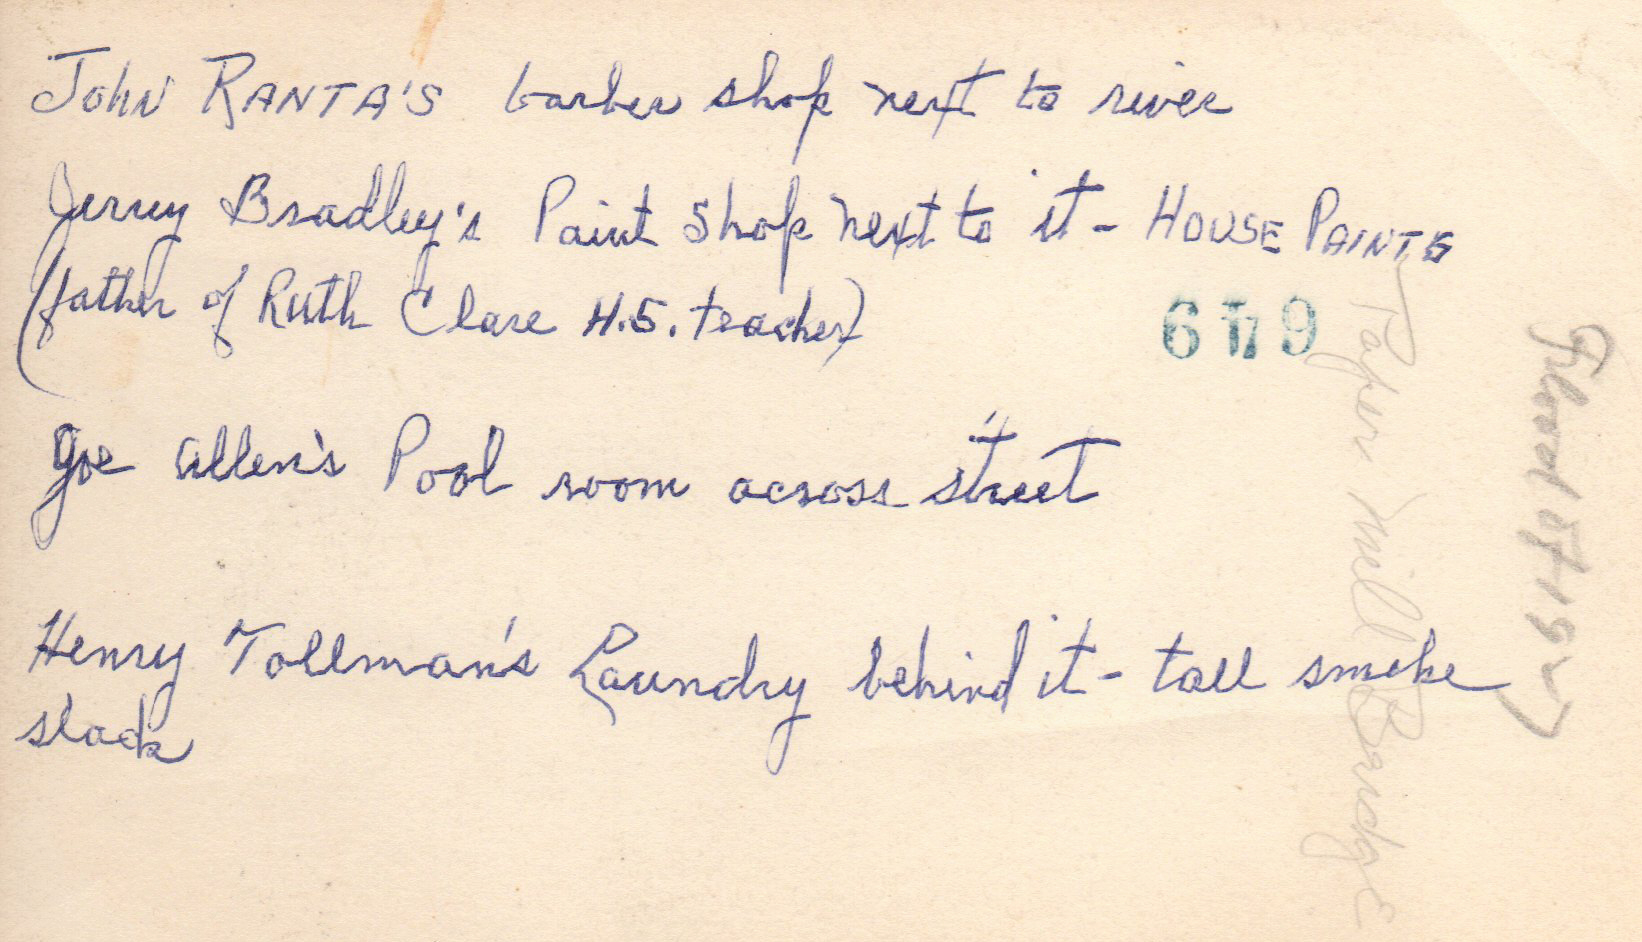 John RANTA'S barber shop next to river
Jerry Bradley's Paint Shop next to it - HOUSE PAINTS
(father of Ruth Clare H.S. teacher)
Joe Allen's Pool room across street
Henry Tollman's Laundry behind it - tall smoke
stack
Paper Mill Bridge
Flood of 1927